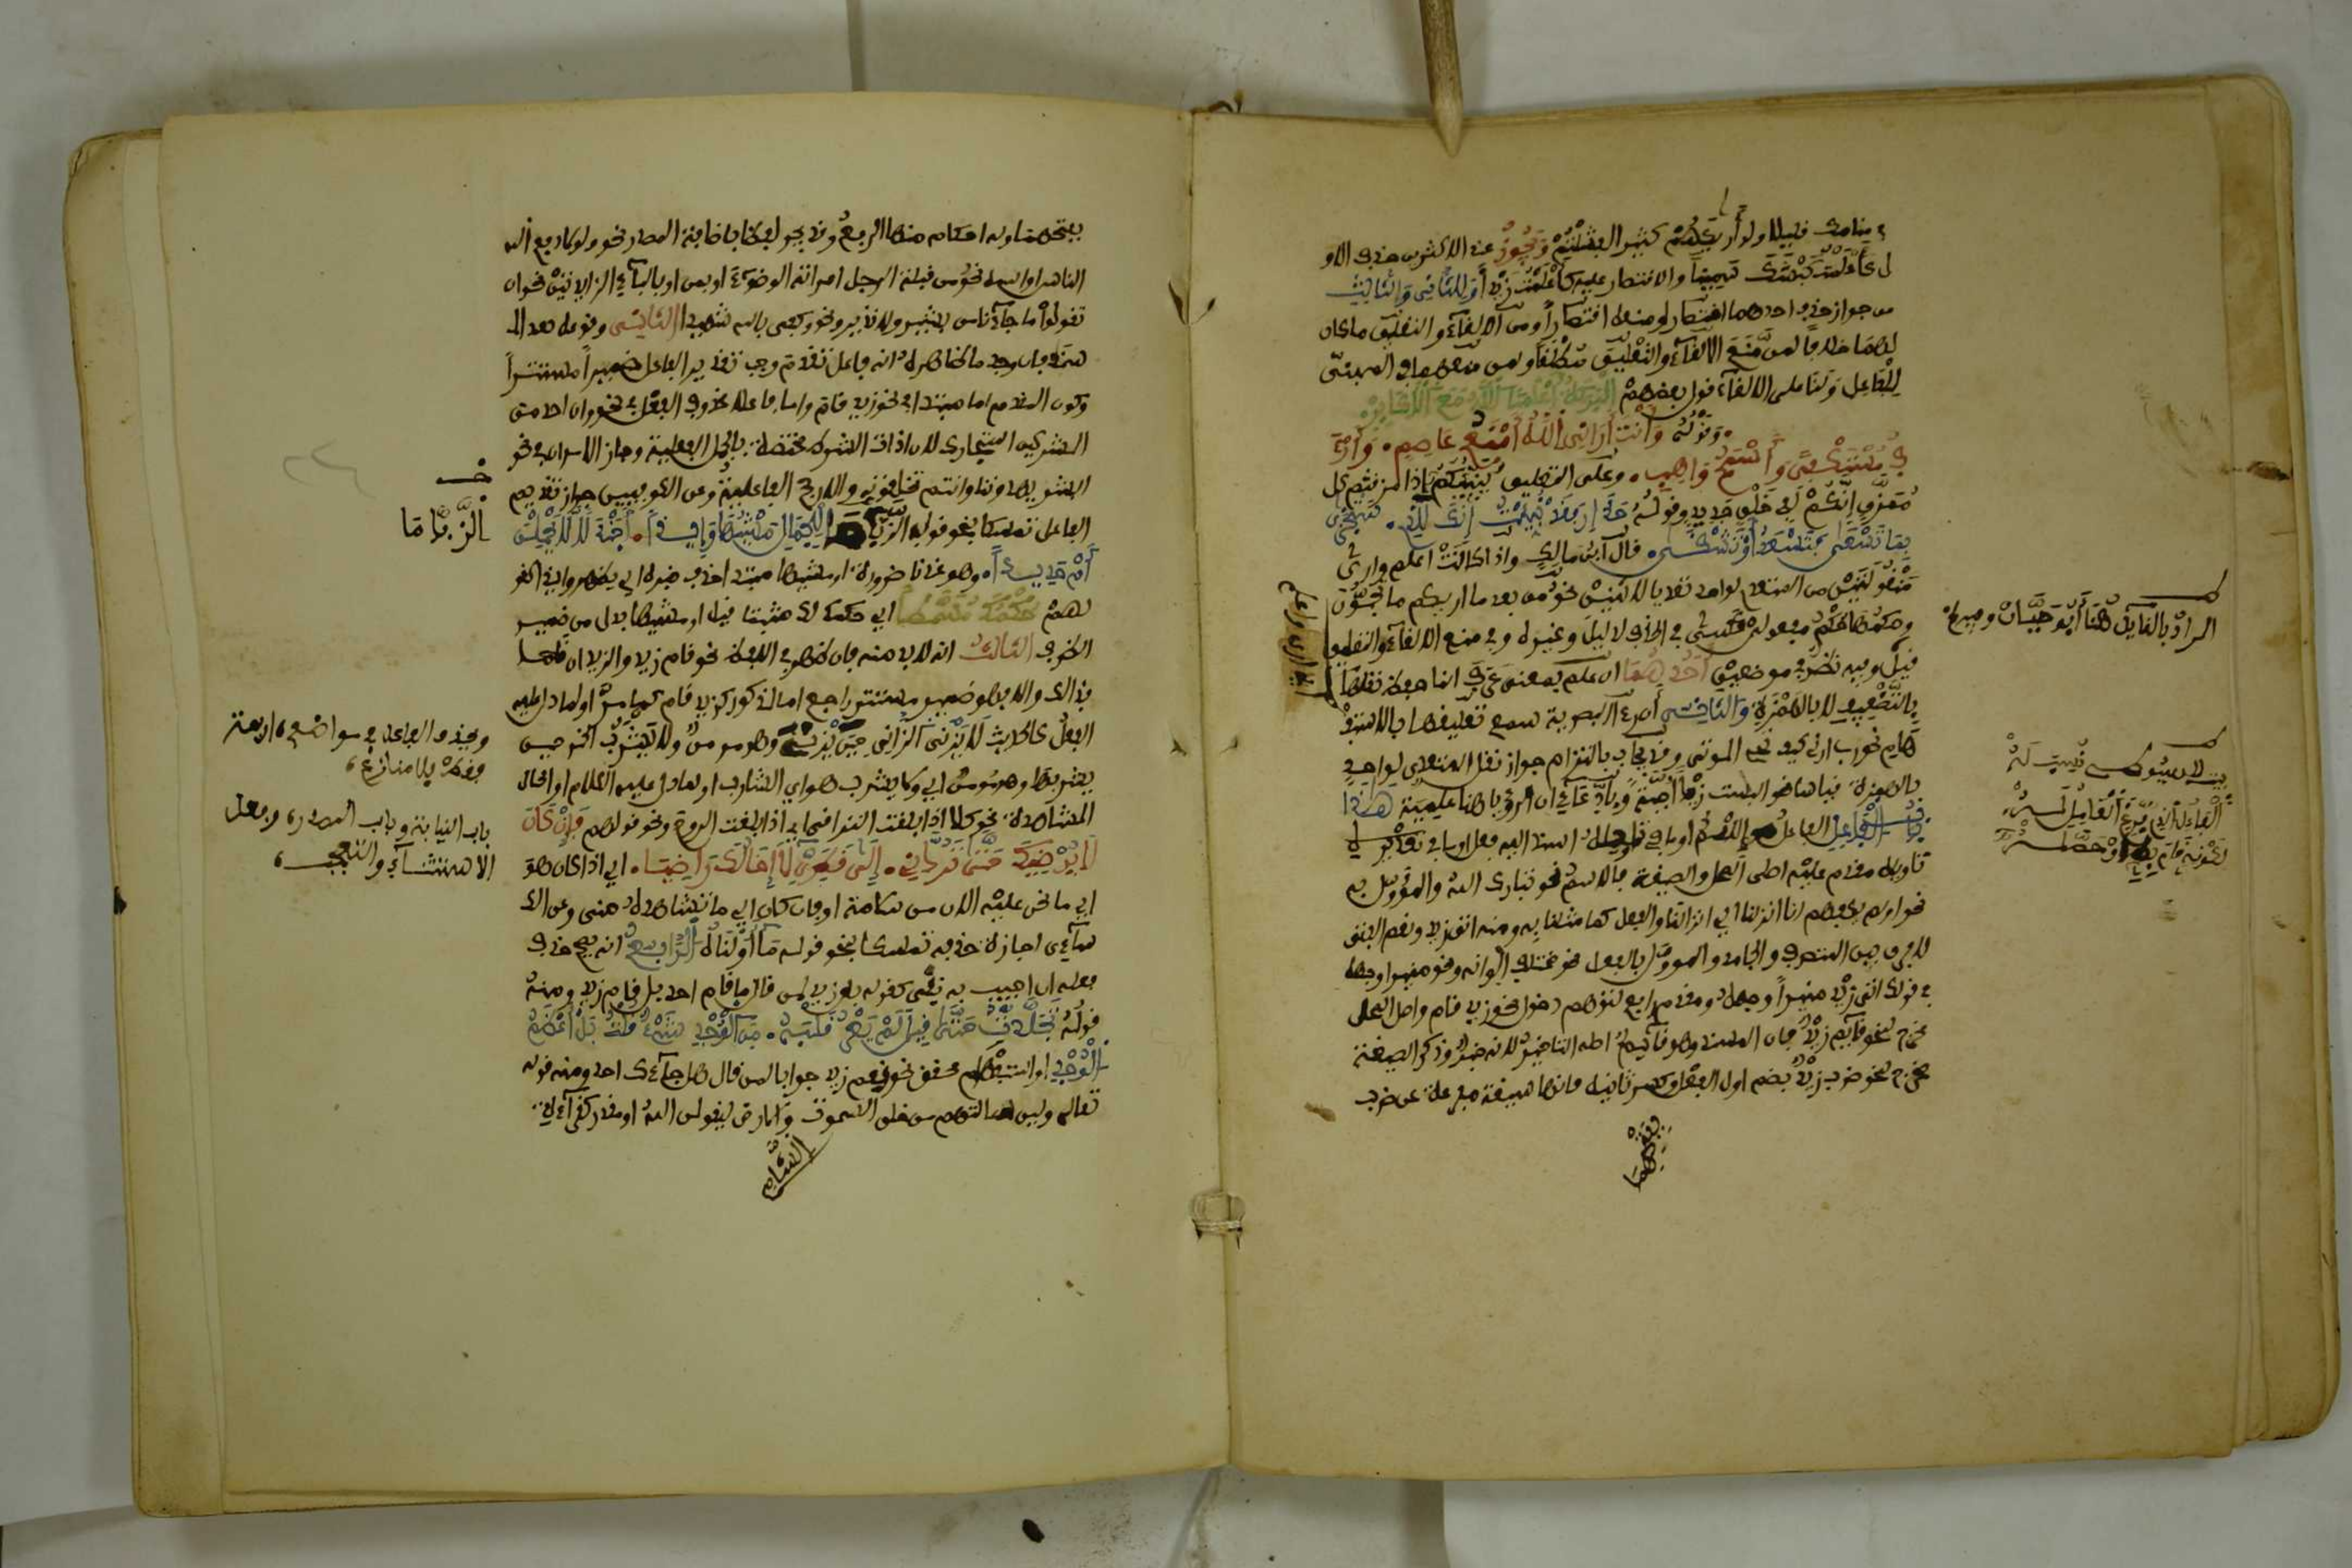 في منامك قليلا ولو أريكهم كثيرا لفشلتم ويجوز عند الاكثرين حذف الاو
ل كأعلمت كبشك سمينا والاقتصار عليه كأعلمت زيدا أو للثاني والثالث
من جواز حذف احدهما اختصارا ومنعه اقتصارا ومن الالغاء والتعليق ما كان
لهما خلافا لمن منع الالغاء والتعليق مطلقا ولمن منعهما في المبني
للفاعل ولنا على الالغاء قول بعضهم البركة أعلمنا الله مع الأكابر
وقوله وأنت أراني الله أمنع عاصم وأرأ
ف مستكفى وأسمح واهب وعلى التعليق ينبئكم إذا مزقتم كل
ممزق إنكم لفي خلق جديد وقوله حذار فقد نبئت إنك للذي ستجزى
بما تسعى فتسعد أو تشقى قال ابن مالك واذا كانت اعلم وارى
منقولتين من المتعدي لواحد تعديا لاثنين نحو من بعد ما أريكم ما تحبون
وحكمهما حكم مفعولي كسى في الحذف لدليل وغيره وفي منع الالغاء والتعليق
قيل وفيه نظر في موضعين أحدهما ان علم بمعنى عرف انما حفظ نقلها
بالتضعيف لا بالهمزة والثاني أن أرى البصرية سمع تعليقها بالاستف
هام نحو رب أرني كيف تحيي الموتى وقد يجاب بالتزام جواز نقل المتعدي لواحد
بالهمزة قياسا نحو ألبست زيدا جبة وبادعاء ان الرؤية هنا علمية هذا
باب الفاعل الفاعل اسم او ما في تأويله اسند اليه فعل او ما في تأويله
مقدم عليه اصلي المحل والصيغة فالاسم نحو تبارك الله والمؤول به
نحو اولم يكفهم انا انزلنا اي انزالنا والفعل كما مثلنا به ومنه اتى زيد ونعم الفتى
لا فرق بين المتصرف والجامد والمؤول بالفعل نحو مختلف الوانه ونحو منيرا وجهه
في قولك اتى زيد منيرا وجهه ومقدم رافع لتوهم دخول نحو زيد قام واصلي المحل
مخرج لنحو قايم زيد فان المسند وهو قايم اصله التاخير لانه خبر وذكر الصيغة
مخرج لنحو ضرب زيد بضم اول الفعل وكسر ثانيه فانها صيغة مفرعة عن ضرب
بفتحهما
المراد بالقايل هنا أبو حيان وغيره
بيت لسيبويه
بفتحهما وله احكام منها الرفع وقد يجر لفظا باضافة المصدر نحو ولولا دفع الله
الناس او اسمه نحو من قبلة الرجل امراته الوضوء او بمن او بالباء الزايدتين نحو ان
تقولوا ما جاءنا من بشير ولا نذير ونحو وكفى بالله شهيدا الثاني وقوعه بعد الم
سند فان وجد ما ظاهره انه فاعل تقدم وجب تقدير الفاعل ضميرا مستترا
وكون المقدم اما مبتدا في نحو زيد قام واما فاعلا محذوف الفعل في نحو وان احد من
المشركين استجارك لان اداة الشرط مختصة بالجمل الفعلية وجاز الامران في نحو
ابشر يهدوننا وانتم تخلقونه والارجح الفاعلية وعن الكوفيين جواز تقديم
الفاعل تمسكا بنحو قول الزبا ما للجمال مشيها وئيدا أجندلا يحملن
أم حديدا وهو عندنا ضرورة او مشيها مبتدا حذف خبره اي يظهر وئيدا كقو
لهم حكمك مسمطا اي حكمك لك مثبتا قيل او مشيها بدل من ضمير
الظرف الثالث انه لا بد منه فان ظهر في اللفظ نحو قام زيد والزيدان قاما
فذاك والا فهو ضمير مستتر راجع اما لمذكور كزيد قام كما مر او لما دل عليه
الفعل كالحديث لا يزني الزاني حين يزني وهو مومن ولا يشرب الخمر حين
يشربها وهو مومن اي ولا يشرب هو اي الشارب او لما دل عليه الكلام او الحال
المشاهدة نحو كلا اذا بلغت التراقي اي اذا بلغت الروح ونحو قولهم فإن كان
لا يرضيك حتى تردني إلى قطري لا إخالك راضيا اي اذا كان هو
اي ما نحن عليه الان من سلامة او فان كان اي ما تشاهده مني وعن الك
ساءي اجازة حذفه تمسكا بنحو قوله ما أولناه الرابع انه يصح حذف
فعله ان اجيب به نفي كقولك بلى زيد لمن قال ما قام احد بل قام زيد ومنه
قوله تجلدت حتى قيل لم يعر قلبه من الوجد شيء قلت بل أعظم
الوجد او استفهام محقق نحو نعم زيد جوابا لمن قال هل جاءك احد ومنه قوله
تعالى ولين سالتهم من خلق السموت والارض ليقولن الله او مقدر كقراءة
الشام
خ
الزبا ما
ويحذف الفاعل في مواضع اربعة
بفكر بلا منازع
باب النيابة وباب المصدر وفعل
الاستثناء والتعجب